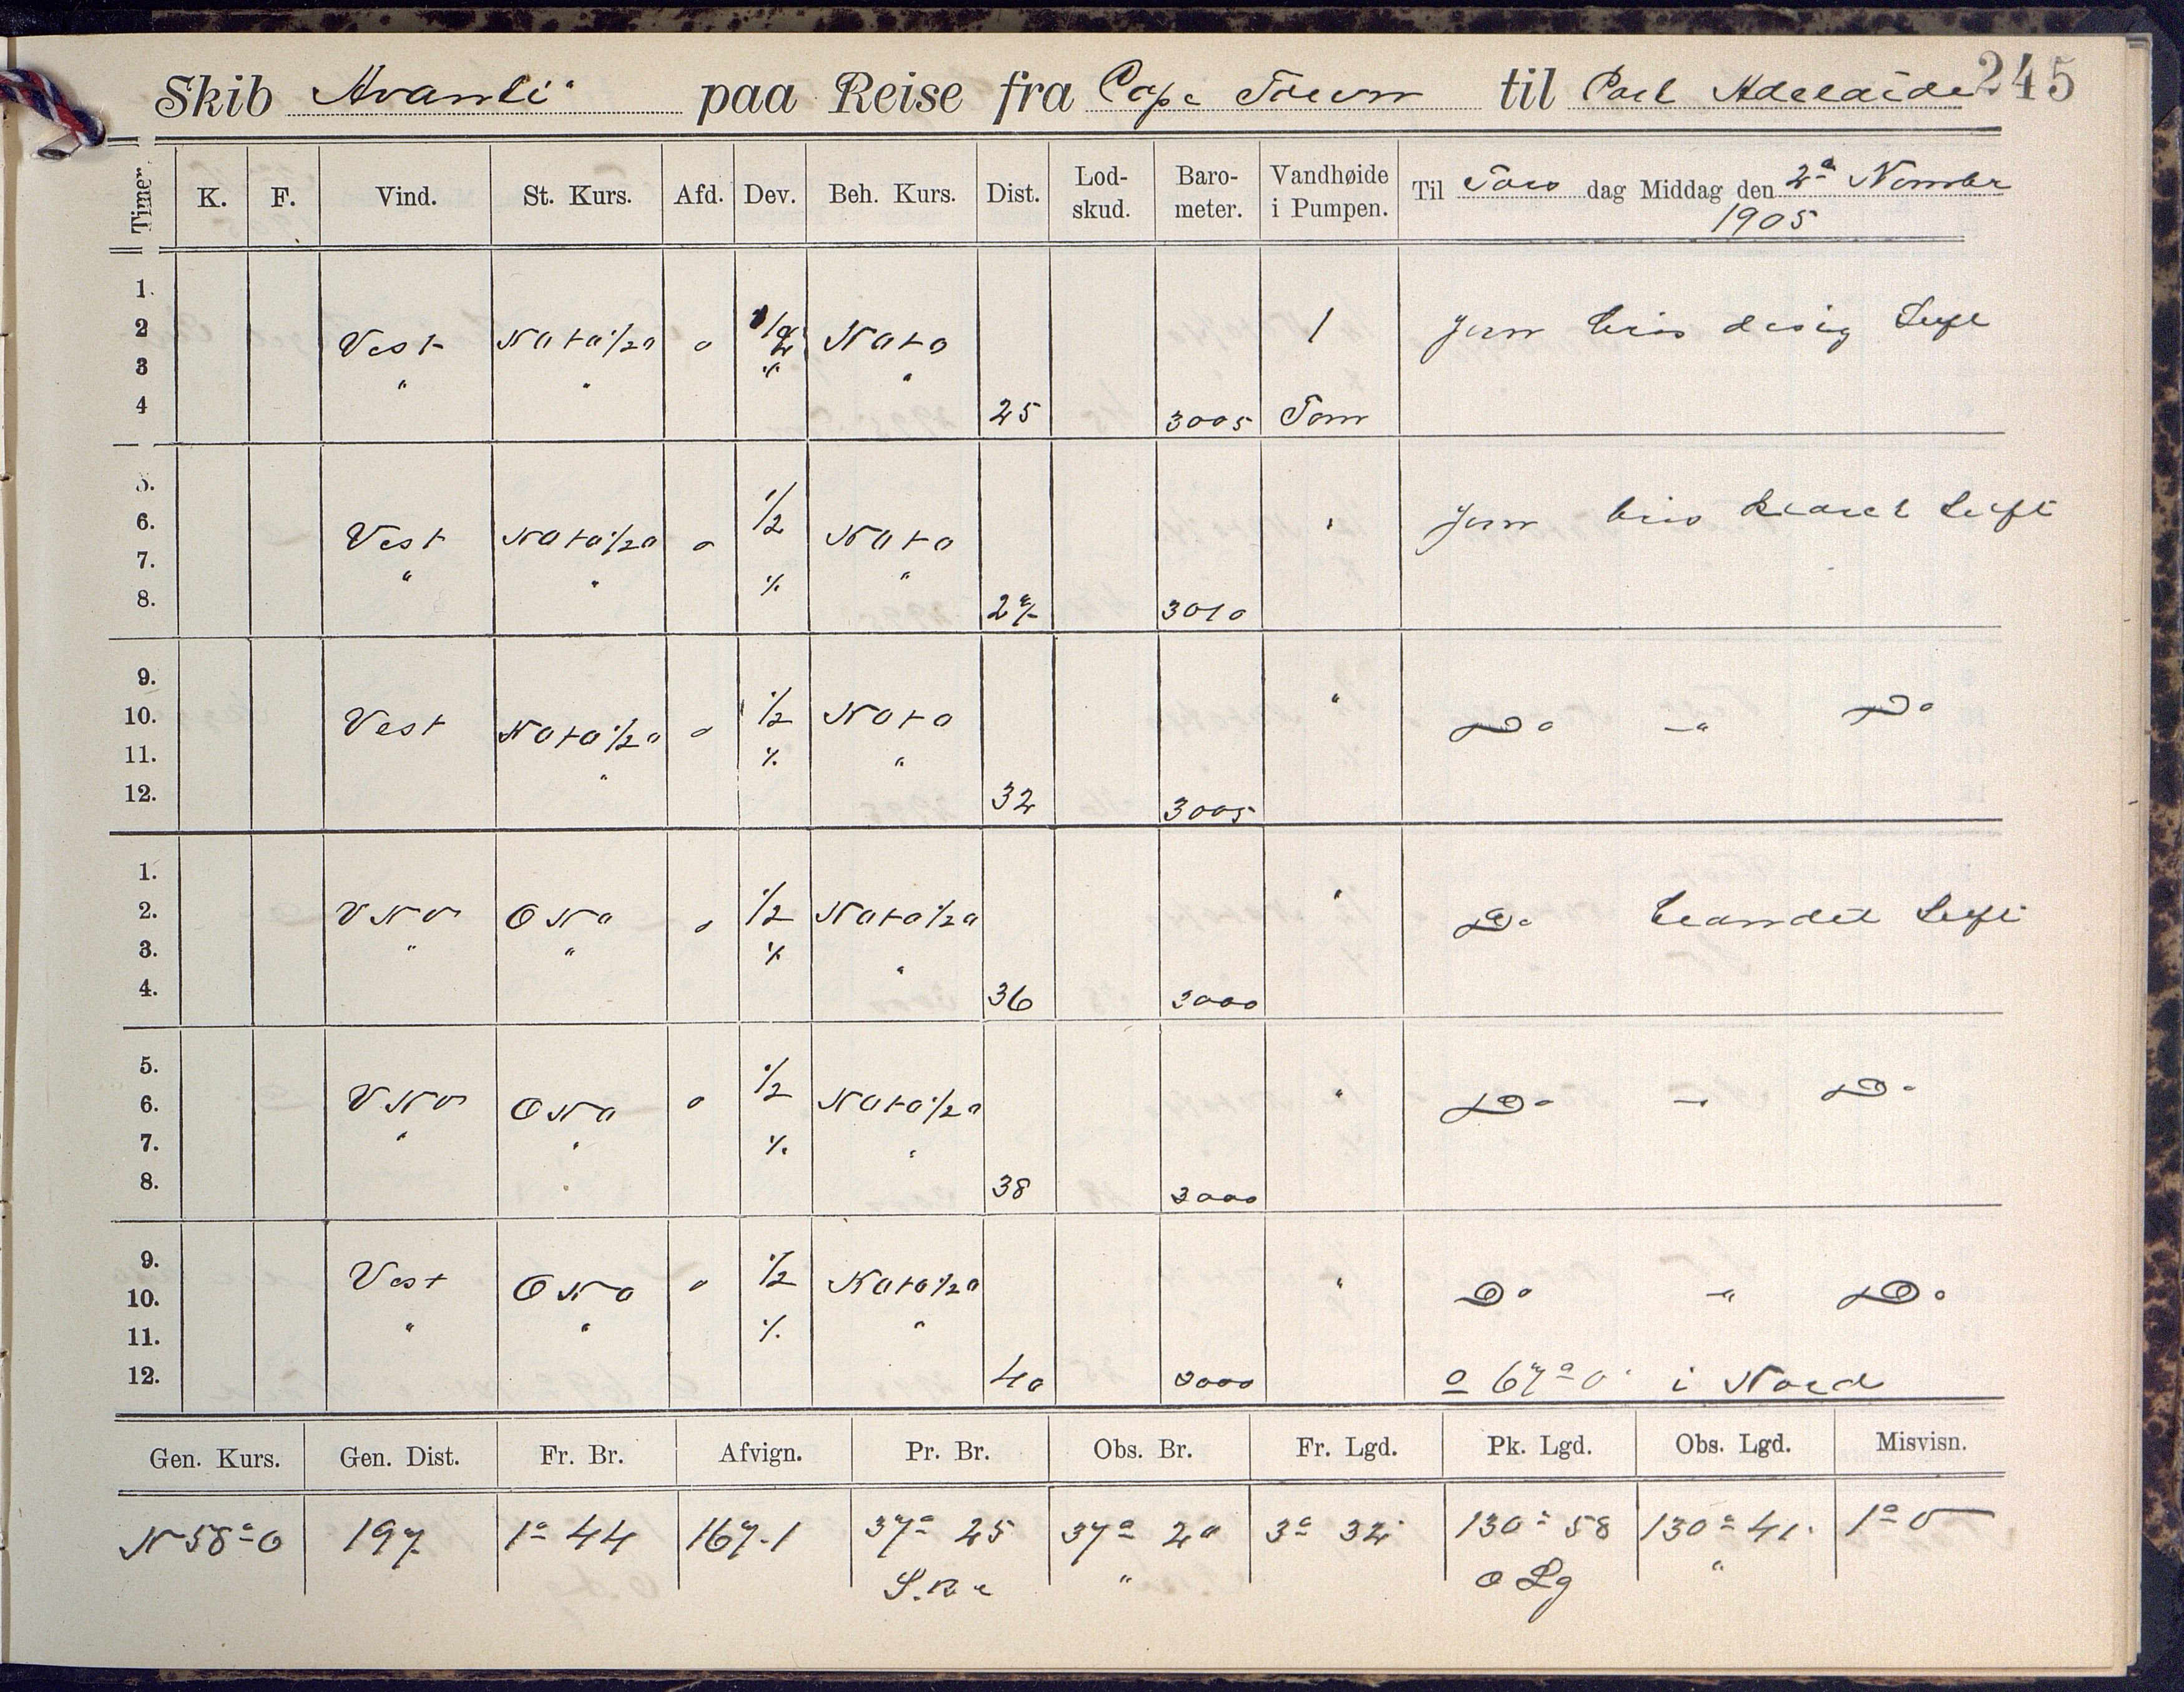 245
Skib Avanti paa Reise fra Cape Town til Port Adelaide
Timer. K. F. Vind. St. Kurs. Afd. Dev. Beh. Kurs. Dist. Lod-skud. Baro-meter. Vandhøide i Pumpen. Til Tors dag Middag den 2ᵃ Novmbr 1905
1.
2 Vest NOtO1/2O o 1/2 NOtO 1 Jevn bris disig Luft
3 " " " "
4 25 3005 Tom
5.
6. Vest NOtO1/2O o 1/2 NOtO " Jevn bris klaret Luft
7. " " "
8. 27 3010
9.
10. Vest NOtO1/2O o 1/2 NOtO " Do -"- Do
11. " "
12. 32 3005
1.
2. VNV ONO o 1/2 NOtO1/2O " Do blandet Luft
3. " " "
4. 36 3000
5.
6. VNV ONO o 1/2 NOtO1/2O " Do -"- Do
7. " " "
8. 38 3000
9.
10. Vest ONO o 1/2 NOtO1/2O " Do -"- Do
11. " " "
12. 40 3000 67° i Nord
Gen. Kurs. Gen. Dist. Fr. Br. Afvign. Pr. Br. Obs. Br. Fr. Lgd. Pk. Lgd. Obs. Lgd. Misvisn.
N 58° O 197 1° 44 167.1 37° 25 37° 20 3° 32' 130° 58 130° 41' 1° O
S. Br " O Lg "